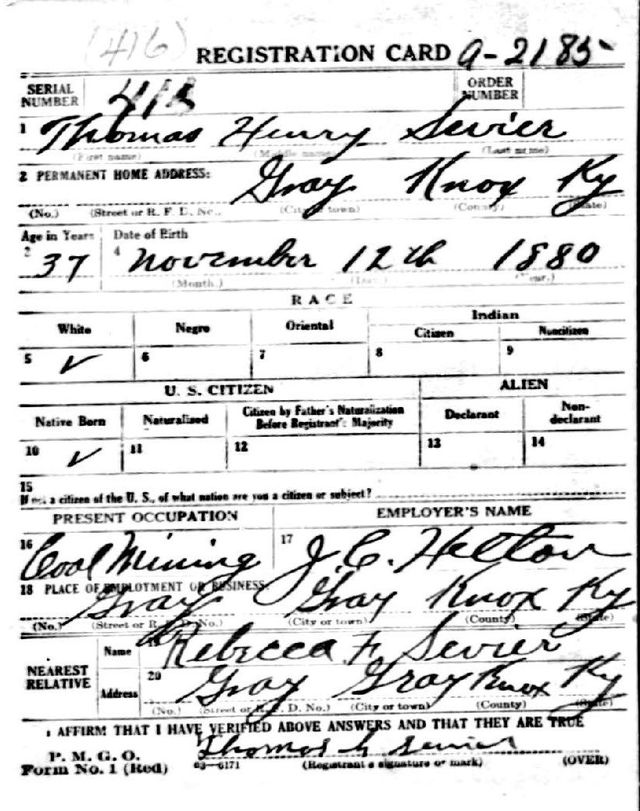 (416)
REGISTRATION CARD A-2185
SERIAL NUMBER
ORDER NUMBER
1 Thomas Henry Sevier
(First name) (Middle name) (Last name)
2 PERMANENT HOME ADDRESS: Gray Knox Ky
(No.) (Street or R. F. D. No.) (City or town) (County) (State)
Age in Years Date of Birth
3 37 4 November 12th 1880
(Month.) (Day.) (Year.)
RACE
White Negro Oriental Indian
Citizen Noncitizen
5 ✓ 6 7 8 9
U. S. CITIZEN ALIEN
Native Born Naturalized Citizen by Father's Naturalization Before Registrant's Majority Declarant Non-declarant
10 ✓ 11 12 13 14
15
If not a citizen of the U. S., of what nation are you a citizen or subject?
PRESENT OCCUPATION EMPLOYER'S NAME
16 Coal Mining 17 J. C. Helton
18 PLACE OF EMPLOYMENT OR BUSINESS:
Gray Gray Knox Ky
(No.) (Street or R. F. D. No.) (City or town) (County) (State)
NEAREST RELATIVE
Name Rebecca F Sevier
Address 20 Gray Gray Knox Ky
(No.) (Street or R. F. D. No.) (City or town) (County) (State)
I AFFIRM THAT I HAVE VERIFIED ABOVE ANSWERS AND THAT THEY ARE TRUE
P. M. G. O.
Form No. 1 (Red) 03-6171 Thomas Sevier
(Registrant's signature or mark) (OVER)